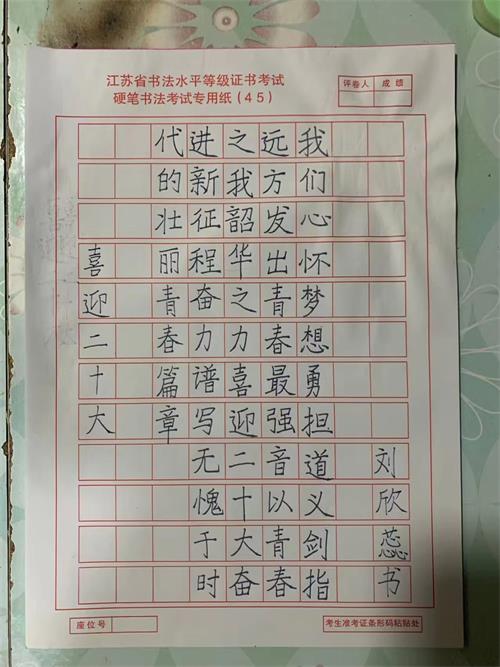 江苏省书法水平等级证书考试
硬笔书法考试专用纸(45)
评卷人 成绩
喜迎二十大
我们心怀梦想勇担道义剑指
远方发出青春最强音以青春
之我韶华之力喜迎二十大奋
进新征程奋力谱写无愧于时
代的壮丽青春篇章
刘欣蕊书
座位号
考生准考证条形码粘贴处